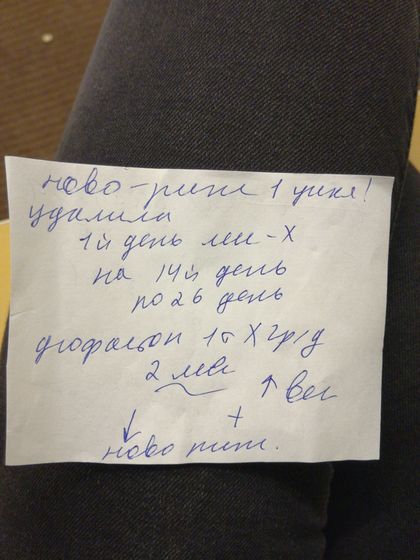 ново-ринг 1 цикл!
удалила
1й день мес-х
на 14й день
по 26 день
дюфастон 1т X 2р/д
2 мес
↑ вес
↓ +
ново ринг.